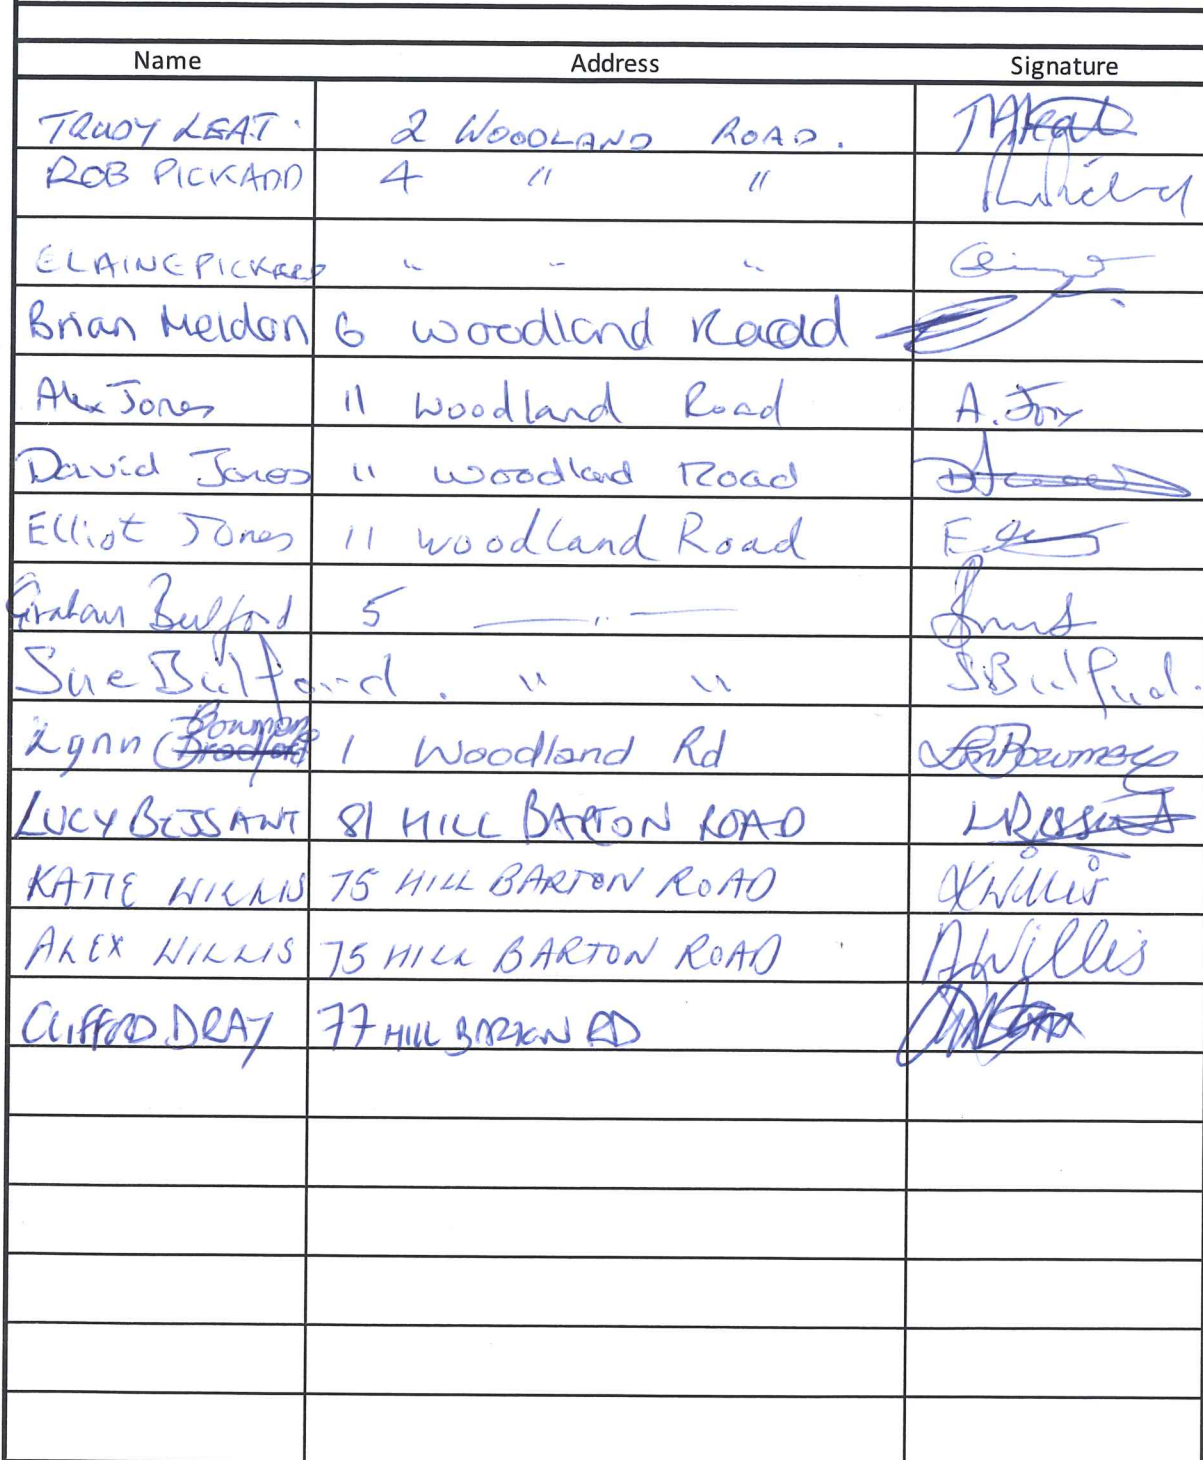 Name Address Signature
TRUDY LEAT. 2 WOODLAND ROAD.
ROB PICKARD 4 " "
ELAINE PICKARD " " "
Brian Meldon 6 Woodland Road
Alex Jones 11 Woodland Road A. Jones
David Jones 11 Woodland Road
Elliot Jones 11 Woodland Road
Graham Bulford 5 — " —
Sue Bulford. " " SBulford.
Lynn Bowman 1 Woodland Rd
LUCY BESSANT 81 HILL BARTON ROAD
KATIE WILLIS 75 HILL BARTON ROAD KWillis
ALEX WILLIS 75 HILL BARTON ROAD AWillis
CLIFFORD DRAY 77 HILL BARTON RD